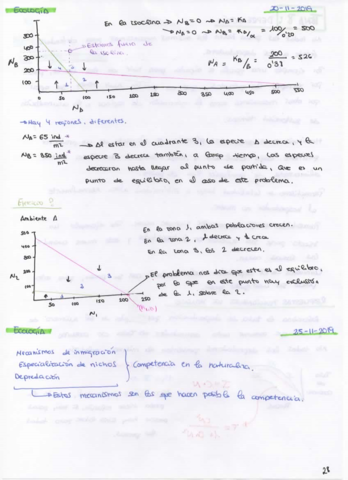 Ecología 20-11-2019
En la isoclina → N_B = 0 → N_A = K_A
→ N_A = 0 → N_B = K_A/α = 100/0'20 = 500
N_A = K_B/β = 200/0'91
Estamos fuera de
la isoclina.
N_B
500
400
300
200
100
0 50 100 150 200 250 300 350 400 450 500 550
→ Hay 4 regiones, diferentes.
N_A = 65 ind/m²
→ Al estar en el cuadrante 3, la especie A decrece, y la
N_B = 350 ind/m²
especie B decrece también, a largo tiempo, las especies
decrecerán hasta llegar al punto de partida, que es un
punto de equilibrio, en el caso de este problema.
Ambiente A
En la zona 1, ambas poblaciones crecen.
En la zona 2, 1 decrece y 2 crece.
En la zona 3, las 2 decrecen.
N₂
→ El problema nos dice que este es el equilibrio,
por lo que en este punto hay exclusión
de la 1, sobre la 2.
0 50 100 150 200 250
N₁
Ecología 25-11-2019
Mecanismos de inmigración
Especialización de nichos } Competencia en la naturaleza.
Depredación
→ Estos mecanismos son los que hacen posible la competencia.
28